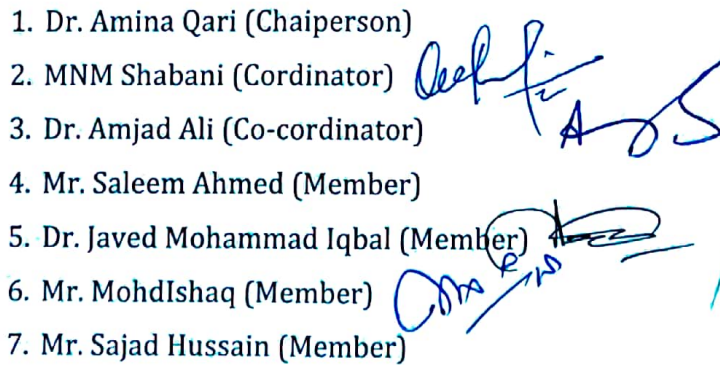 1. Dr. Amina Qari (Chaiperson)
2. MNM Shabani (Cordinator)
3. Dr. Amjad Ali (Co-cordinator)
4. Mr. Saleem Ahmed (Member)
5. Dr. Javed Mohammad Iqbal (Member)
6. Mr. MohdIshaq (Member)
7. Mr. Sajad Hussain (Member)